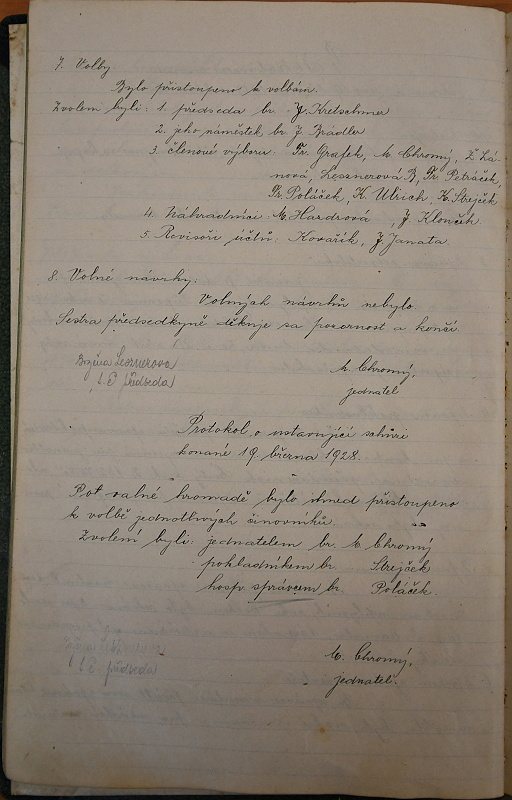 7. Volby
Bylo přistoupeno k volbám.
Zvolem byli: 1. předseda br. J. Kretschmer
2. jeho náměstek, br. J. Brádler
3. členové výboru: Fr. Grafek, M. Chromý, Ž. Lá-
nová, Lesznerová B, Fr. Petráček,
Fr. Poláček, K. Ulrich, K. Strejček
4. Náhradníci: M. Hazdrová, J. Klouček.
5. Revisoři účtů: Kovařík, J. Janata.
8. Volné návrhy.
Volných návrhů nebylo
Sestra předsedkyně děkuje za pozornost a končí.
Božena Lesznerova
t. č. předseda
M. Chromý,
jednatel
Protokol o ustavující schůzi
konané 19. března 1928.
Po valné hromadě bylo ihned přistoupeno
k volbě jednotlivých činovníků.
Zvolení byli: jednatelem br. M. Chromý
pokladníkem br. Strejček
hosp. správcem br. Poláček.
t. č. předseda
M. Chromý,
jednatel.